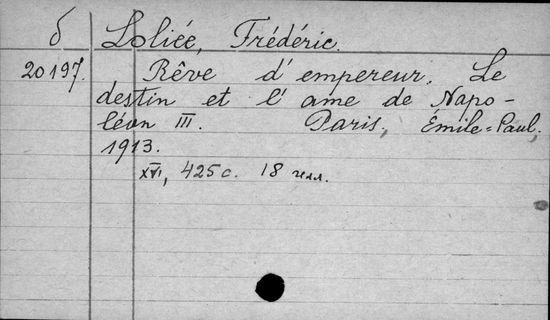 б Loliée, Frédéric.
20197. Rêve d'empereur. Le
destin et l'ame de Napo-
léon III. Paris, Émile=Paul,
1913.
XVI, 425 с. 18 илл.